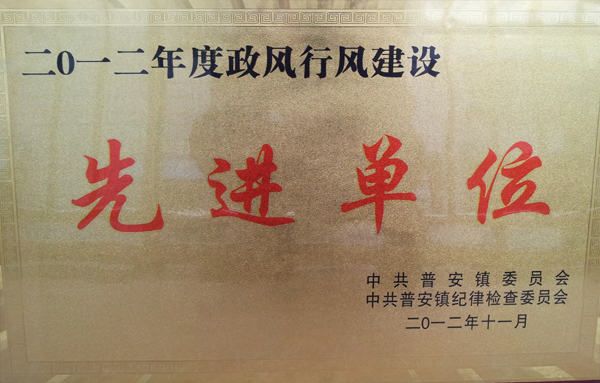 二〇一二年度政风行风建设
先进单位
中共普安镇委员会
中共普安镇纪律检查委员会
二〇一二年十一月